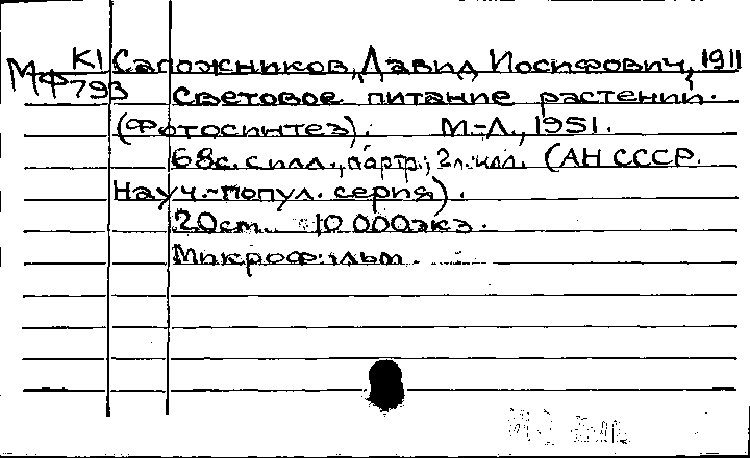 К1 Сапожников, Давид Иосифович, 1911
МФ793 Световое питание растений.
(Фотосинтез). М-Л., 1951.
68с. с илл., портр.; 2л. илл. (АН СССР.
Науч.-попул. серия).
20см. 10 000экз.
Микрофильм.